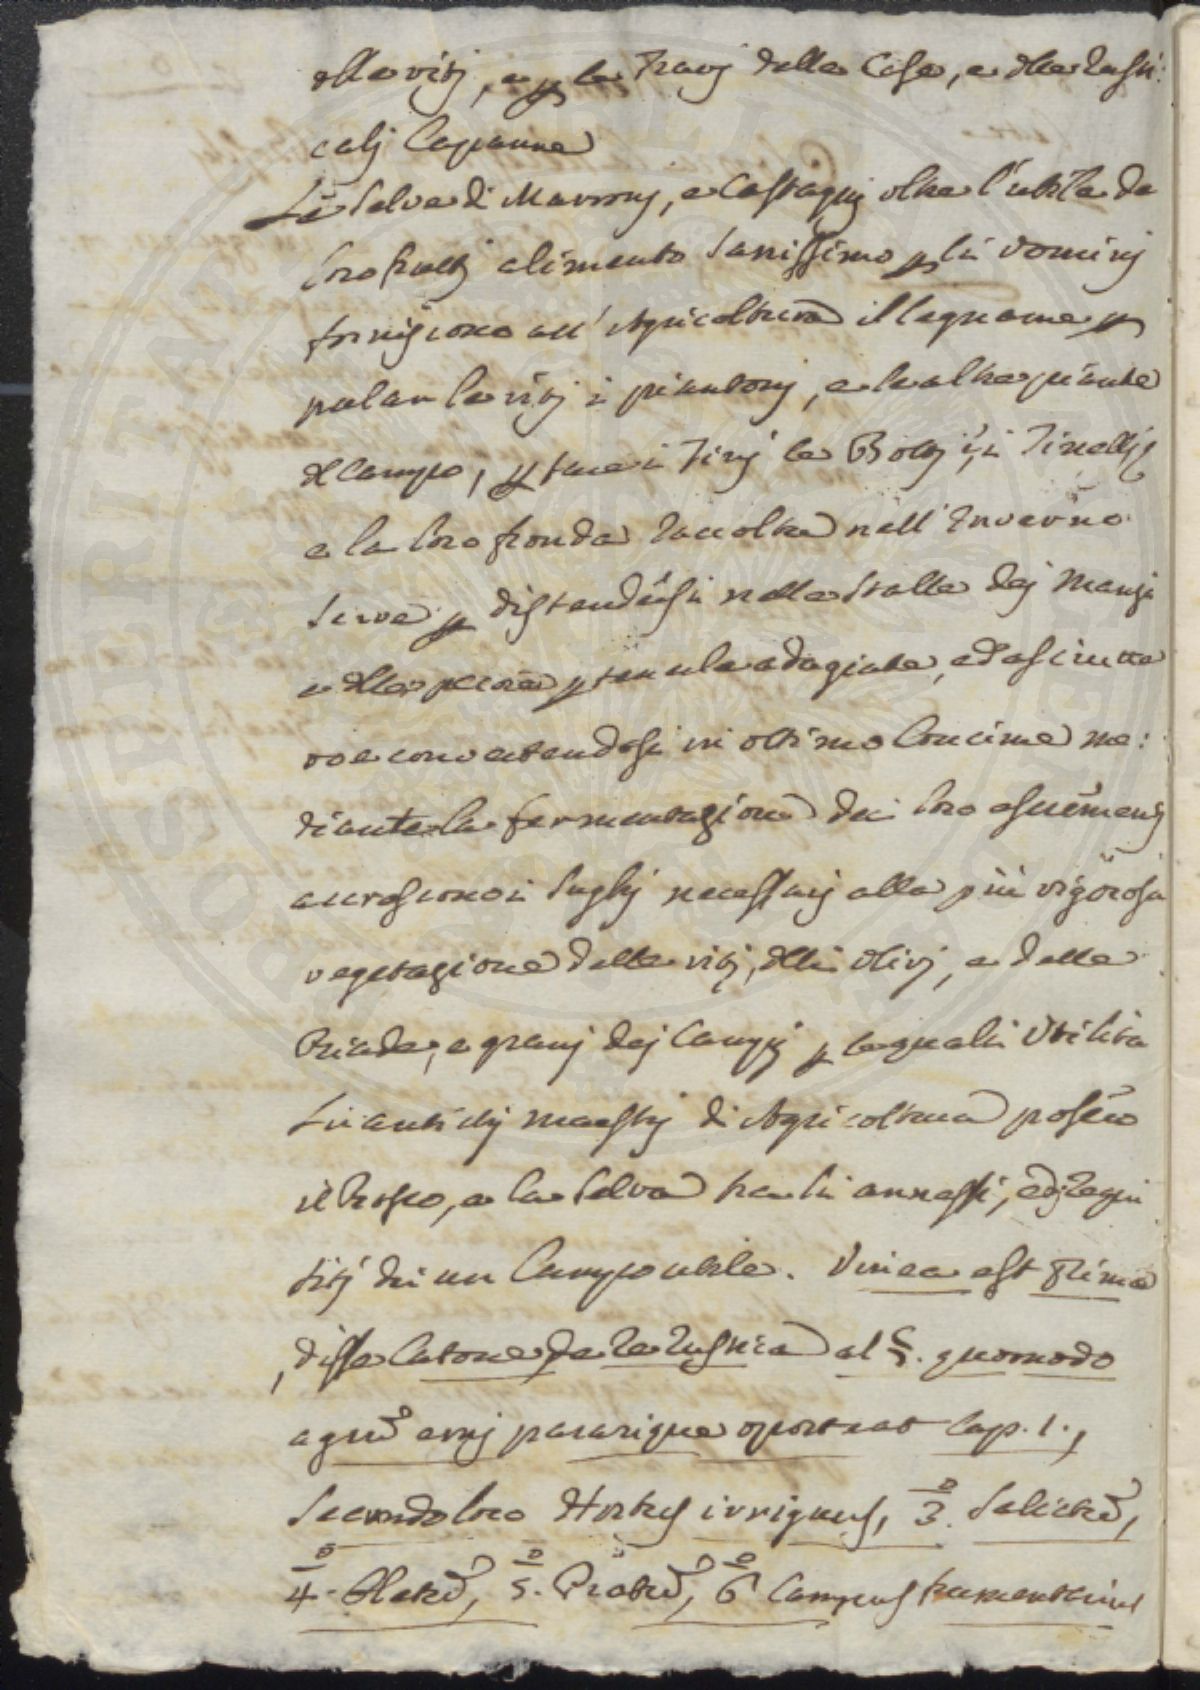 delle vitj, e p le Travj delle Case, e delle Rusti:
calj Capanne
Le Selve di Marronj, e Castagnj oltre l'utile de
loro frutti alimento sanissimo p li Uominj
forniscono all'Agricoltura il legname p
palar le vitj i piantonj, e le altre piante
del campo, p fare i Tinj le Bottj, i Tinellj
e la loro fronda raccolta nell'Inverno
serve p distendersi nelle stalle dej Manzi
e delle pecore p tenerle adagiate, ed asciutte
e convertendosi in ottimo Concime me:
diante la fermentazione dei loro escrementj
accrescono i sughj necessarj alla più vigorosa
vegetazione delle vitj, delli olivj, e delle
Biade, e granj dej Campj p le quali Utilità
Li antichj maestrj di Agricoltura posero
il Bosco, e la Selva tra li annessi, e Requi
sitj di un Campo utile. Vinea est Prima
disse Catone De Re Rustica al C. quomodo
agrũ emj pararique oporteat Cap. 1.,
Secondo loco Hortus irriguus, 3.º Salictũ,
4.º Oletũ, 5.º Pratũ, 6.º Campus frumentarius